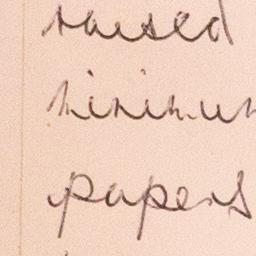 raised
minimum
papers